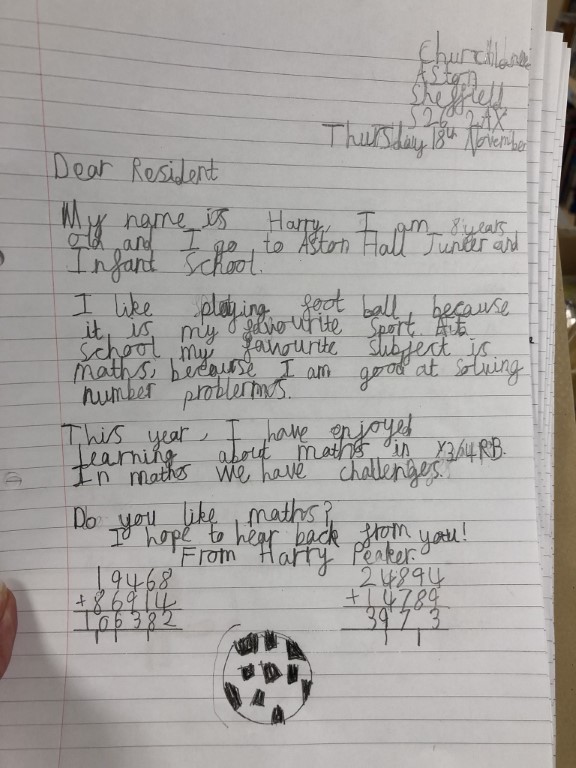 Church Lane
Aston
Sheffield
S26 2AX
Thursday 18th November
Dear Resident
My name is Harry, I am 8 years
old and I go to Aston Hall Junier and
Infant School.
I like playing foot ball, because
it is my favourite sport. At
school my favourite subject is
maths, because I am good at solving
number problems.
This year, I have enjoyed
learning about maths in
In maths we have challenges.
Do you like maths?
I hope to hear back from you!
From Harry Peaker.
19468
+86914
106382
1 1 1
24894
+14789
397 3
1 1